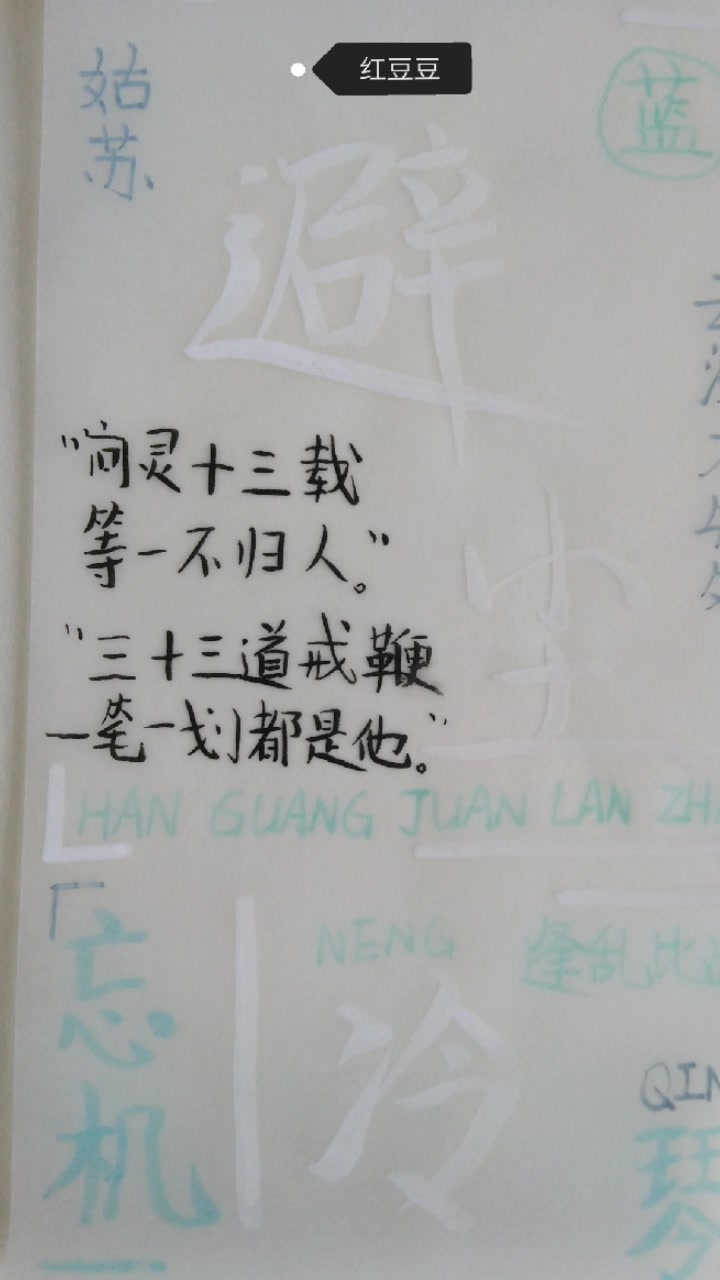 红豆豆
姑
苏
蓝
避
尘
“问灵十三载
等一不归人。”
“三十三道戒鞭
一笔一划都是他。”
HAN GUANG JUAN LAN ZHA
「忘
机
NENG 逢乱比
冷
QIN
琴